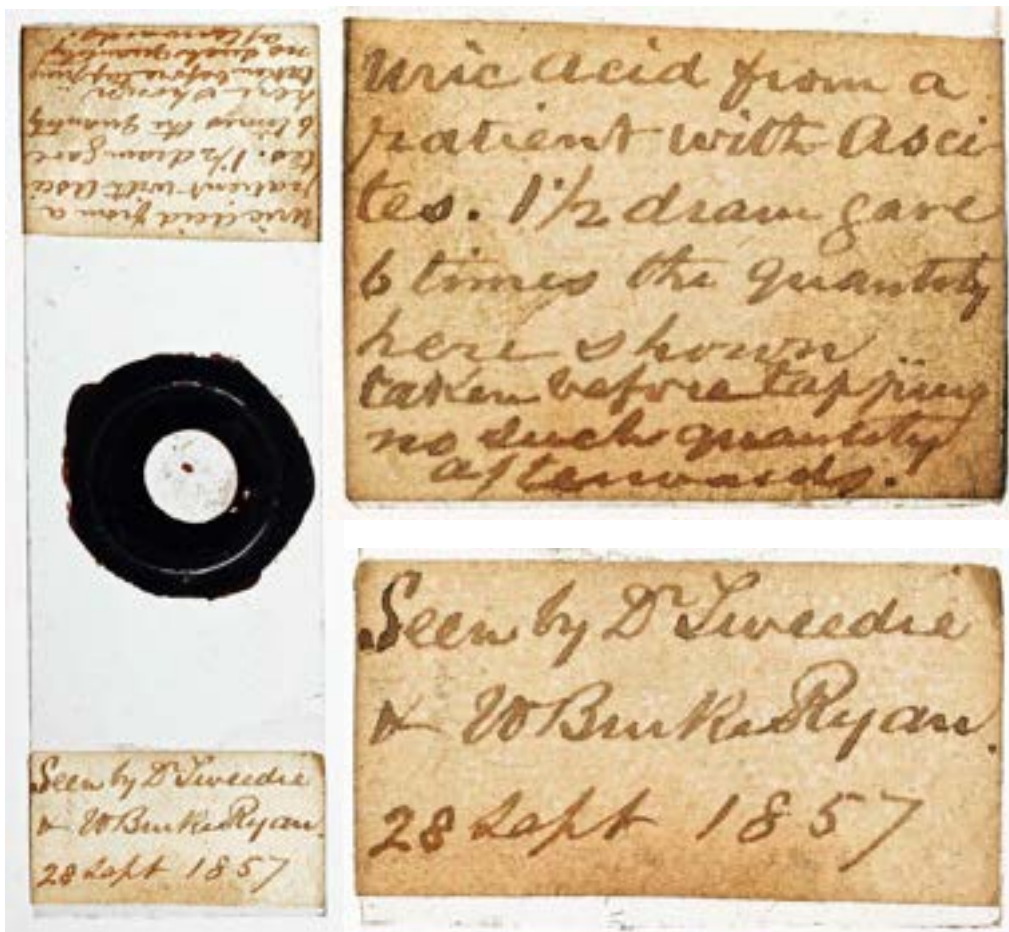 Uric acid from a
patient with Asci
tes. 1½ dram gave
6 times the quantity
here shown
taken before tapping
no such quantity
afterwards.
Seen by Dr Tweedie
& W Burke Ryan.
28 Sept 1857
Uric acid from a
patient with Asci-
tes. 1½ dram gave
6 times the quantity
here shown
taken before tapping
no such quantity
afterwards.
Seen by Dr Tweedie
& W Burke Ryan.
28 Sept 1857